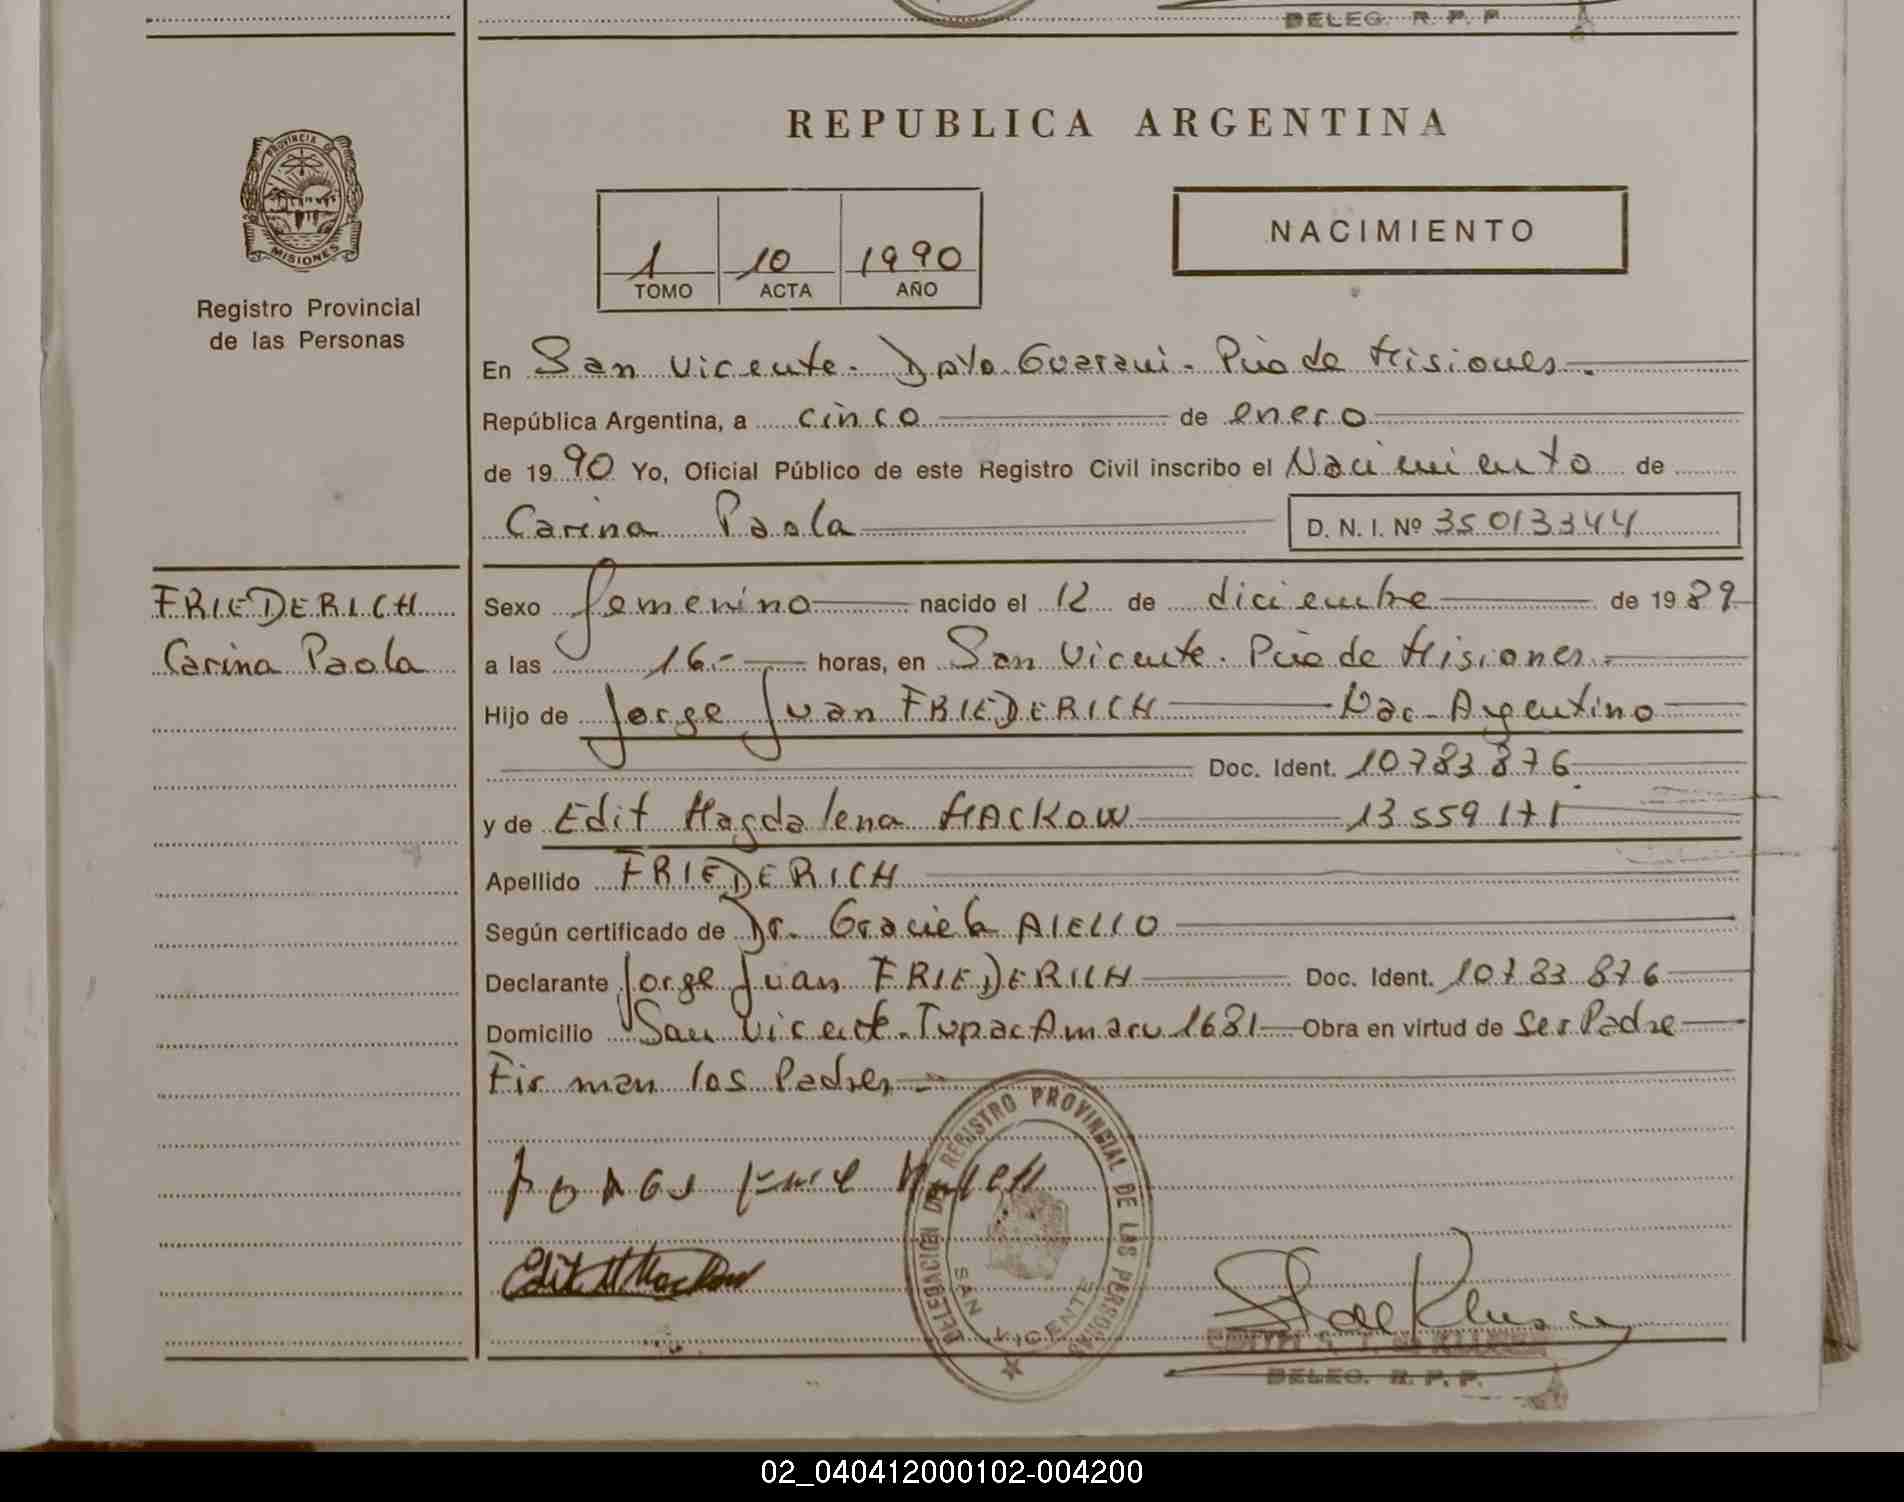 DELEG. R. P. P.
REPUBLICA ARGENTINA
PROVINCIA DE
MISIONES
Registro Provincial
de las Personas
NACIMIENTO
1 10 1990
TOMO ACTA AÑO
En San Vicente. Dpto Guarani. Pcia de Misiones.
República Argentina, a cinco de enero
de 1990 Yo, Oficial Público de este Registro Civil inscribo el Nacimiento de
Carina Paola D. N. I. Nº 35013344
FRIEDERICH
Carina Paola
Sexo femenino nacido el 12 de diciembre de 1989
a las 16.- horas, en San Vicente. Pcia de Misiones.
Hijo de Jorge Juan FRIEDERICH Nac. Argentino
Doc. Ident. 10783876
y de Edit Magdalena MACKOW 13559171
Apellido FRIEDERICH
Según certificado de Dr. Graciela AIELLO
Declarante Jorge Juan FRIEDERICH Doc. Ident. 10783876
Domicilio San Vicente. Tupac Amaru 1681 Obra en virtud de ser Padre
Firman los Padres
DELEGACION DEL REGISTRO PROVINCIAL DE LAS PERSONAS
SAN VICENTE
Edit M Mackow
DELEG. R. P. P.
02_040412000102-004200